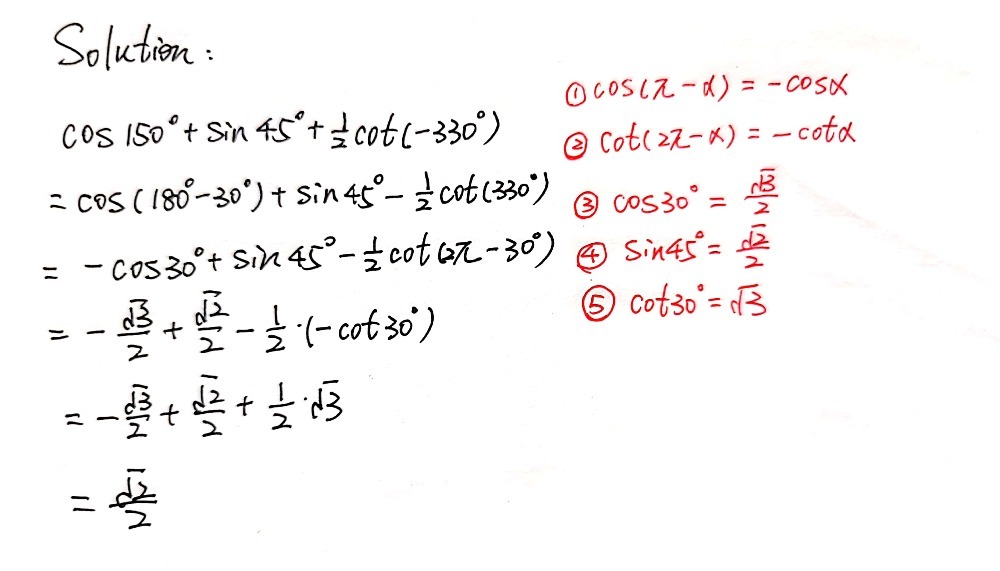 Solution:
cos 150° + sin 45° + 1/2 cot(-330°)
= cos(180° - 30°) + sin 45° - 1/2 cot(330°)
= -cos30° + sin 45° - 1/2 cot(2π - 30°)
= - √3/2 + √2/2 - 1/2 · (-cot30°)
= - √3/2 + √2/2 + 1/2 · √3
= √2/2
① cos(π - α) = -cosα
② cot(2π - α) = - cotα
③ cos30° = √3/2
④ sin45° = √2/2
⑤ cot30° = √3